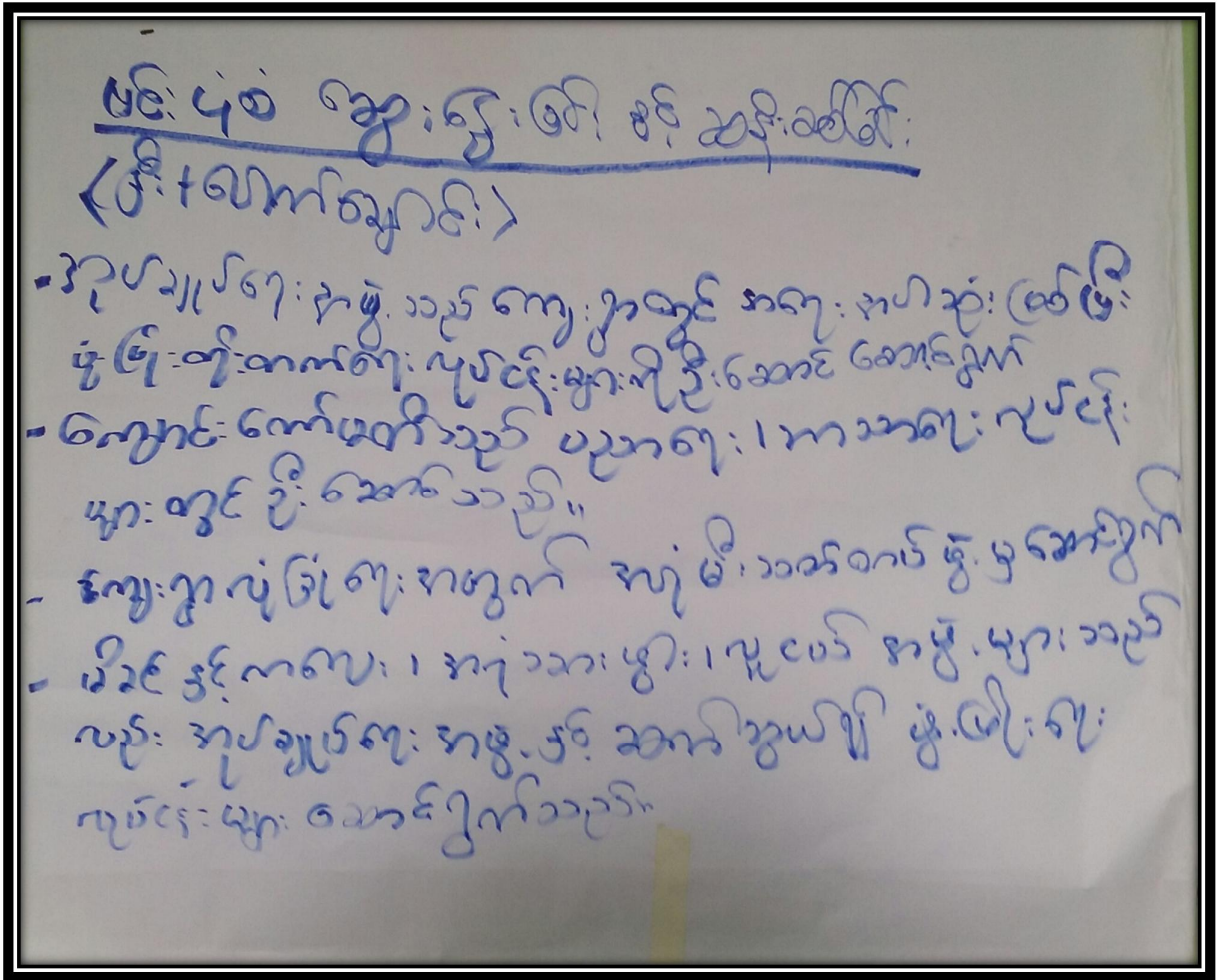 ပင်းပုံစံ ဆွေးနွေးခြင်း နှင့် ဆန်းစစ်ခြင်း
(မှီး + လောက်ချောင်း)
- အုပ်ချုပ်ရေးအဖွဲ့သည် ကျေးရွာတွင် အရေးအပါဆုံးဖြစ်ပြီး
ဖွံ့ဖြိုးတိုးတက်ရေးလုပ်ငန်းများကို ဦးဆောင် ဆောင်ရွက်
- ကျောင်းကော်မတီသည် ပညာရေး ၊ ဘာသာရေး လုပ်ငန်း
များတွင် ဦးဆောင်သည်။
- ကျေးရွာလုံခြုံရေးအတွက် အရံမီးသတ်တပ်ဖွဲ့မှ ဆောင်ရွက်
- မိခင်နှင့်ကလေး ၊ အရံသားဖွား ၊ လူငယ် အဖွဲ့များသည်
လည်း အုပ်ချုပ်ရေးအဖွဲ့နှင့် ဆက်သွယ်၍ ဖွံ့ဖြိုးရေး
လုပ်ငန်းများ ဆောင်ရွက်သည်။